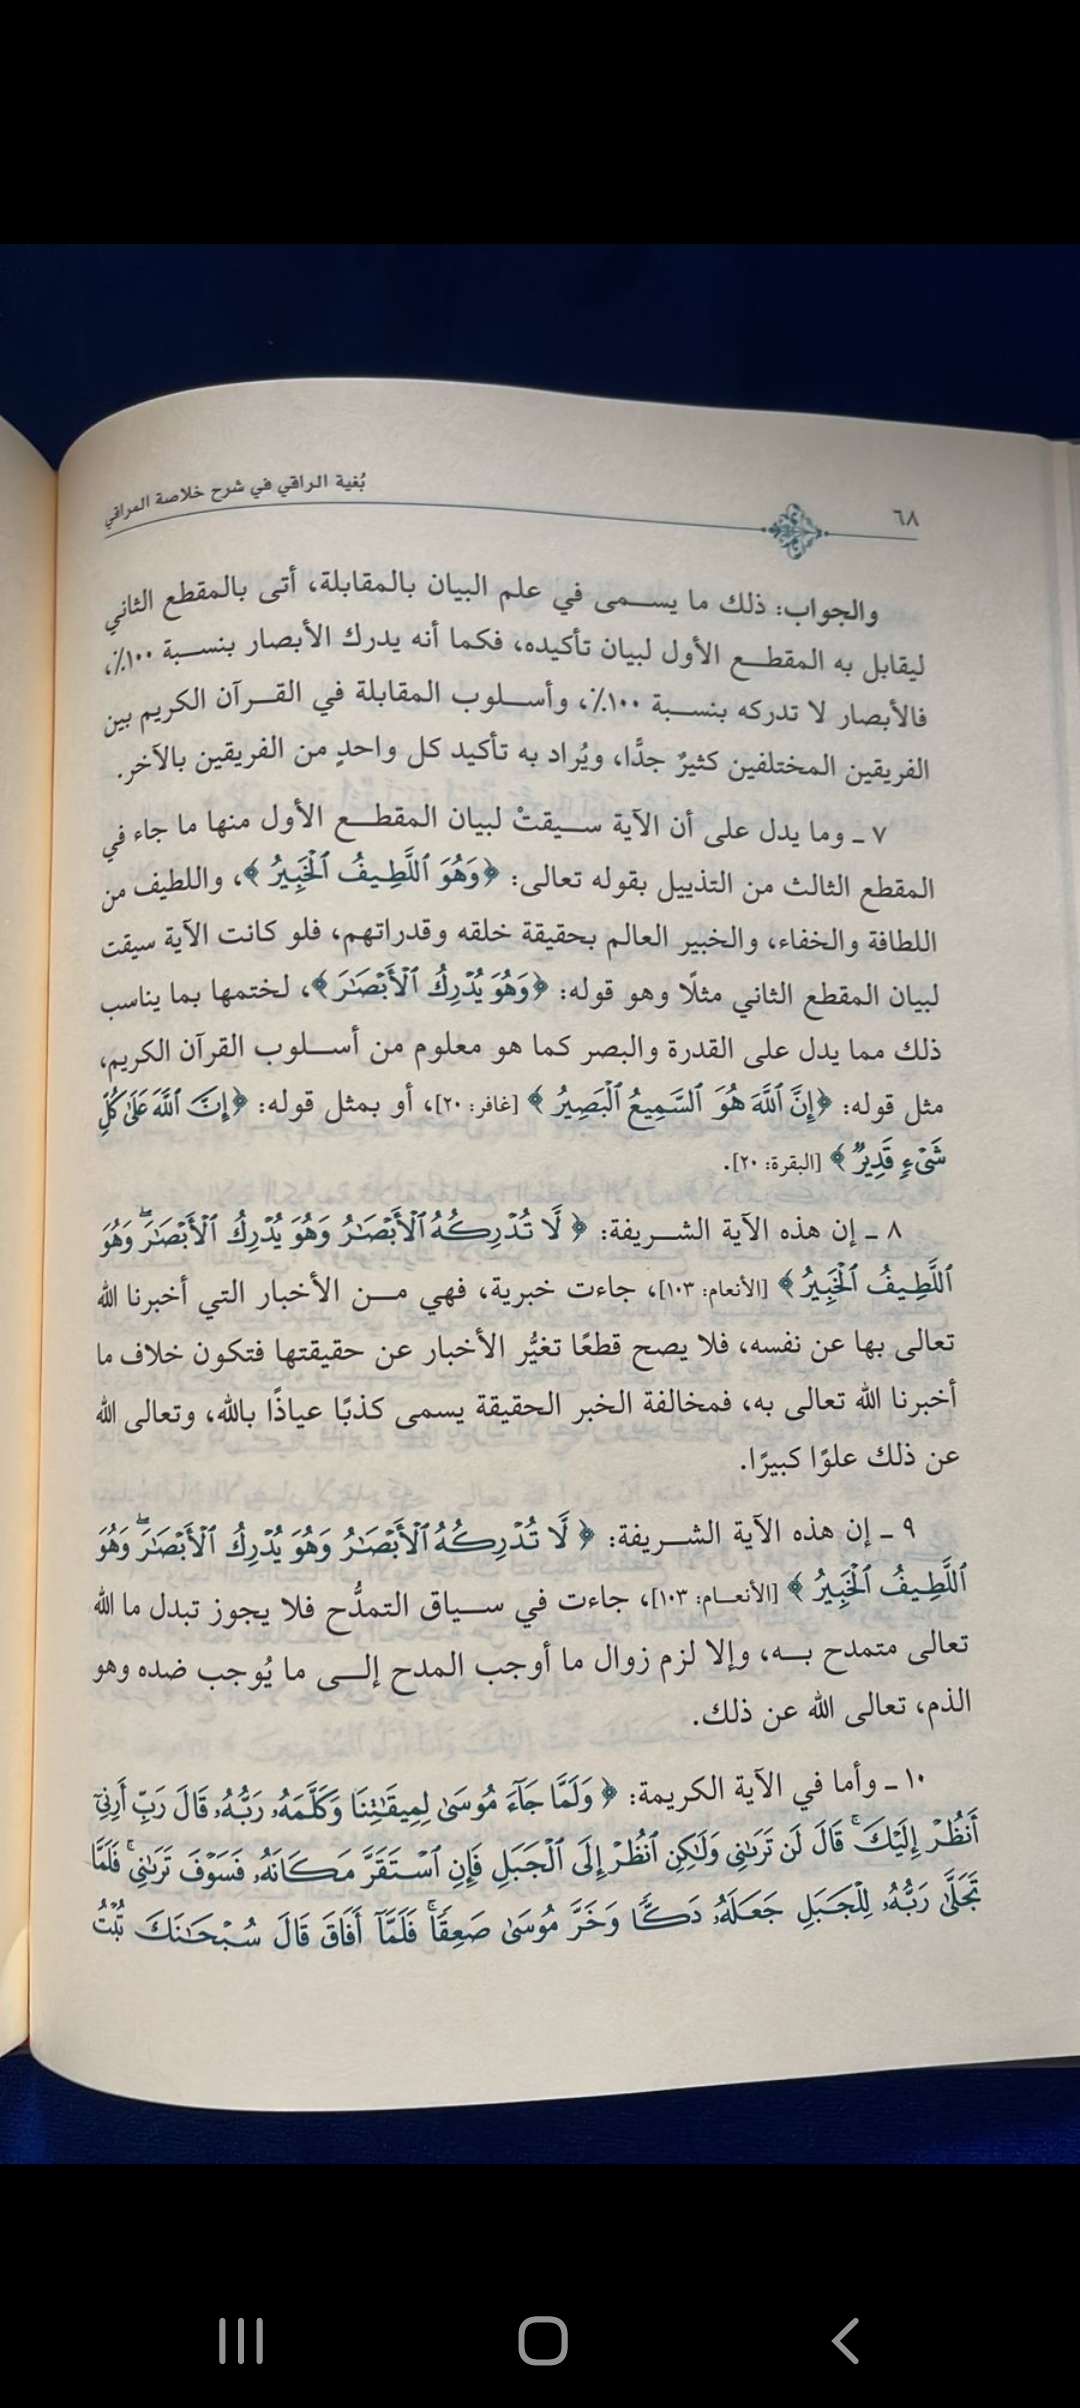 ٦٨
بُغية الراقي في شرح خلاصة المراقي
والجواب: ذلك ما يسمى في علم البيان بالمقابلة، أتى بالمقطع الثاني
ليقابل به المقطع الأول لبيان تأكيده، فكما أنه يدرك الأبصار بنسبة ١٠٠٪،
فالأبصار لا تدركه بنسبة ١٠٠٪، وأسلوب المقابلة في القرآن الكريم بين
الفريقين المختلفين كثيرٌ جدًّا، ويُراد به تأكيد كل واحدٍ من الفريقين بالآخر.
٧ ـ وما يدل على أن الآية سيقتْ لبيان المقطع الأول منها ما جاء في
المقطع الثالث من التذييل بقوله تعالى: ﴿وَهُوَ ٱللَّطِيفُ ٱلْخَبِيرُ﴾، واللطيف من
اللطافة والخفاء، والخبير العالم بحقيقة خلقه وقدراتهم، فلو كانت الآية سيقت
لبيان المقطع الثاني مثلًا وهو قوله: ﴿وَهُوَ يُدْرِكُ ٱلْأَبْصَٰرَ﴾، لختمها بما يناسب
ذلك مما يدل على القدرة والبصر كما هو معلوم من أسلوب القرآن الكريم،
مثل قوله: ﴿إِنَّ ٱللَّهَ هُوَ ٱلسَّمِيعُ ٱلْبَصِيرُ﴾ [غافر: ٢٠]، أو بمثل قوله: ﴿إِنَّ ٱللَّهَ عَلَىٰ كُلِّ
شَىْءٍ قَدِيرٌ﴾ [البقرة: ٢٠].
٨ ـ إن هذه الآية الشريفة: ﴿لَّا تُدْرِكُهُ ٱلْأَبْصَٰرُ وَهُوَ يُدْرِكُ ٱلْأَبْصَٰرَۖ وَهُوَ
ٱللَّطِيفُ ٱلْخَبِيرُ﴾ [الأنعام: ١٠٣]، جاءت خبرية، فهي من الأخبار التي أخبرنا الله
تعالى بها عن نفسه، فلا يصح قطعًا تغيُّر الأخبار عن حقيقتها فتكون خلاف ما
أخبرنا الله تعالى به، فمخالفة الخبر الحقيقة يسمى كذبًا عياذًا بالله، وتعالى الله
عن ذلك علوًا كبيرًا.
٩ ـ إن هذه الآية الشريفة: ﴿لَّا تُدْرِكُهُ ٱلْأَبْصَٰرُ وَهُوَ يُدْرِكُ ٱلْأَبْصَٰرَۖ وَهُوَ
ٱللَّطِيفُ ٱلْخَبِيرُ﴾ [الأنعام: ١٠٣]، جاءت في سياق التمدُّح فلا يجوز تبدل ما الله
تعالى متمدح به، وإلا لزم زوال ما أوجب المدح إلى ما يُوجب ضده وهو
الذم، تعالى الله عن ذلك.
١٠ ـ وأما في الآية الكريمة: ﴿وَلَمَّا جَآءَ مُوسَىٰ لِمِيقَٰتِنَا وَكَلَّمَهُۥ رَبُّهُۥ قَالَ رَبِّ أَرِنِىٓ
أَنظُرْ إِلَيْكَۚ قَالَ لَن تَرَىٰنِى وَلَٰكِنِ ٱنظُرْ إِلَى ٱلْجَبَلِ فَإِنِ ٱسْتَقَرَّ مَكَانَهُۥ فَسَوْفَ تَرَىٰنِىۚ فَلَمَّا
تَجَلَّىٰ رَبُّهُۥ لِلْجَبَلِ جَعَلَهُۥ دَكًّا وَخَرَّ مُوسَىٰ صَعِقًاۚ فَلَمَّآ أَفَاقَ قَالَ سُبْحَٰنَكَ تُبْتُ